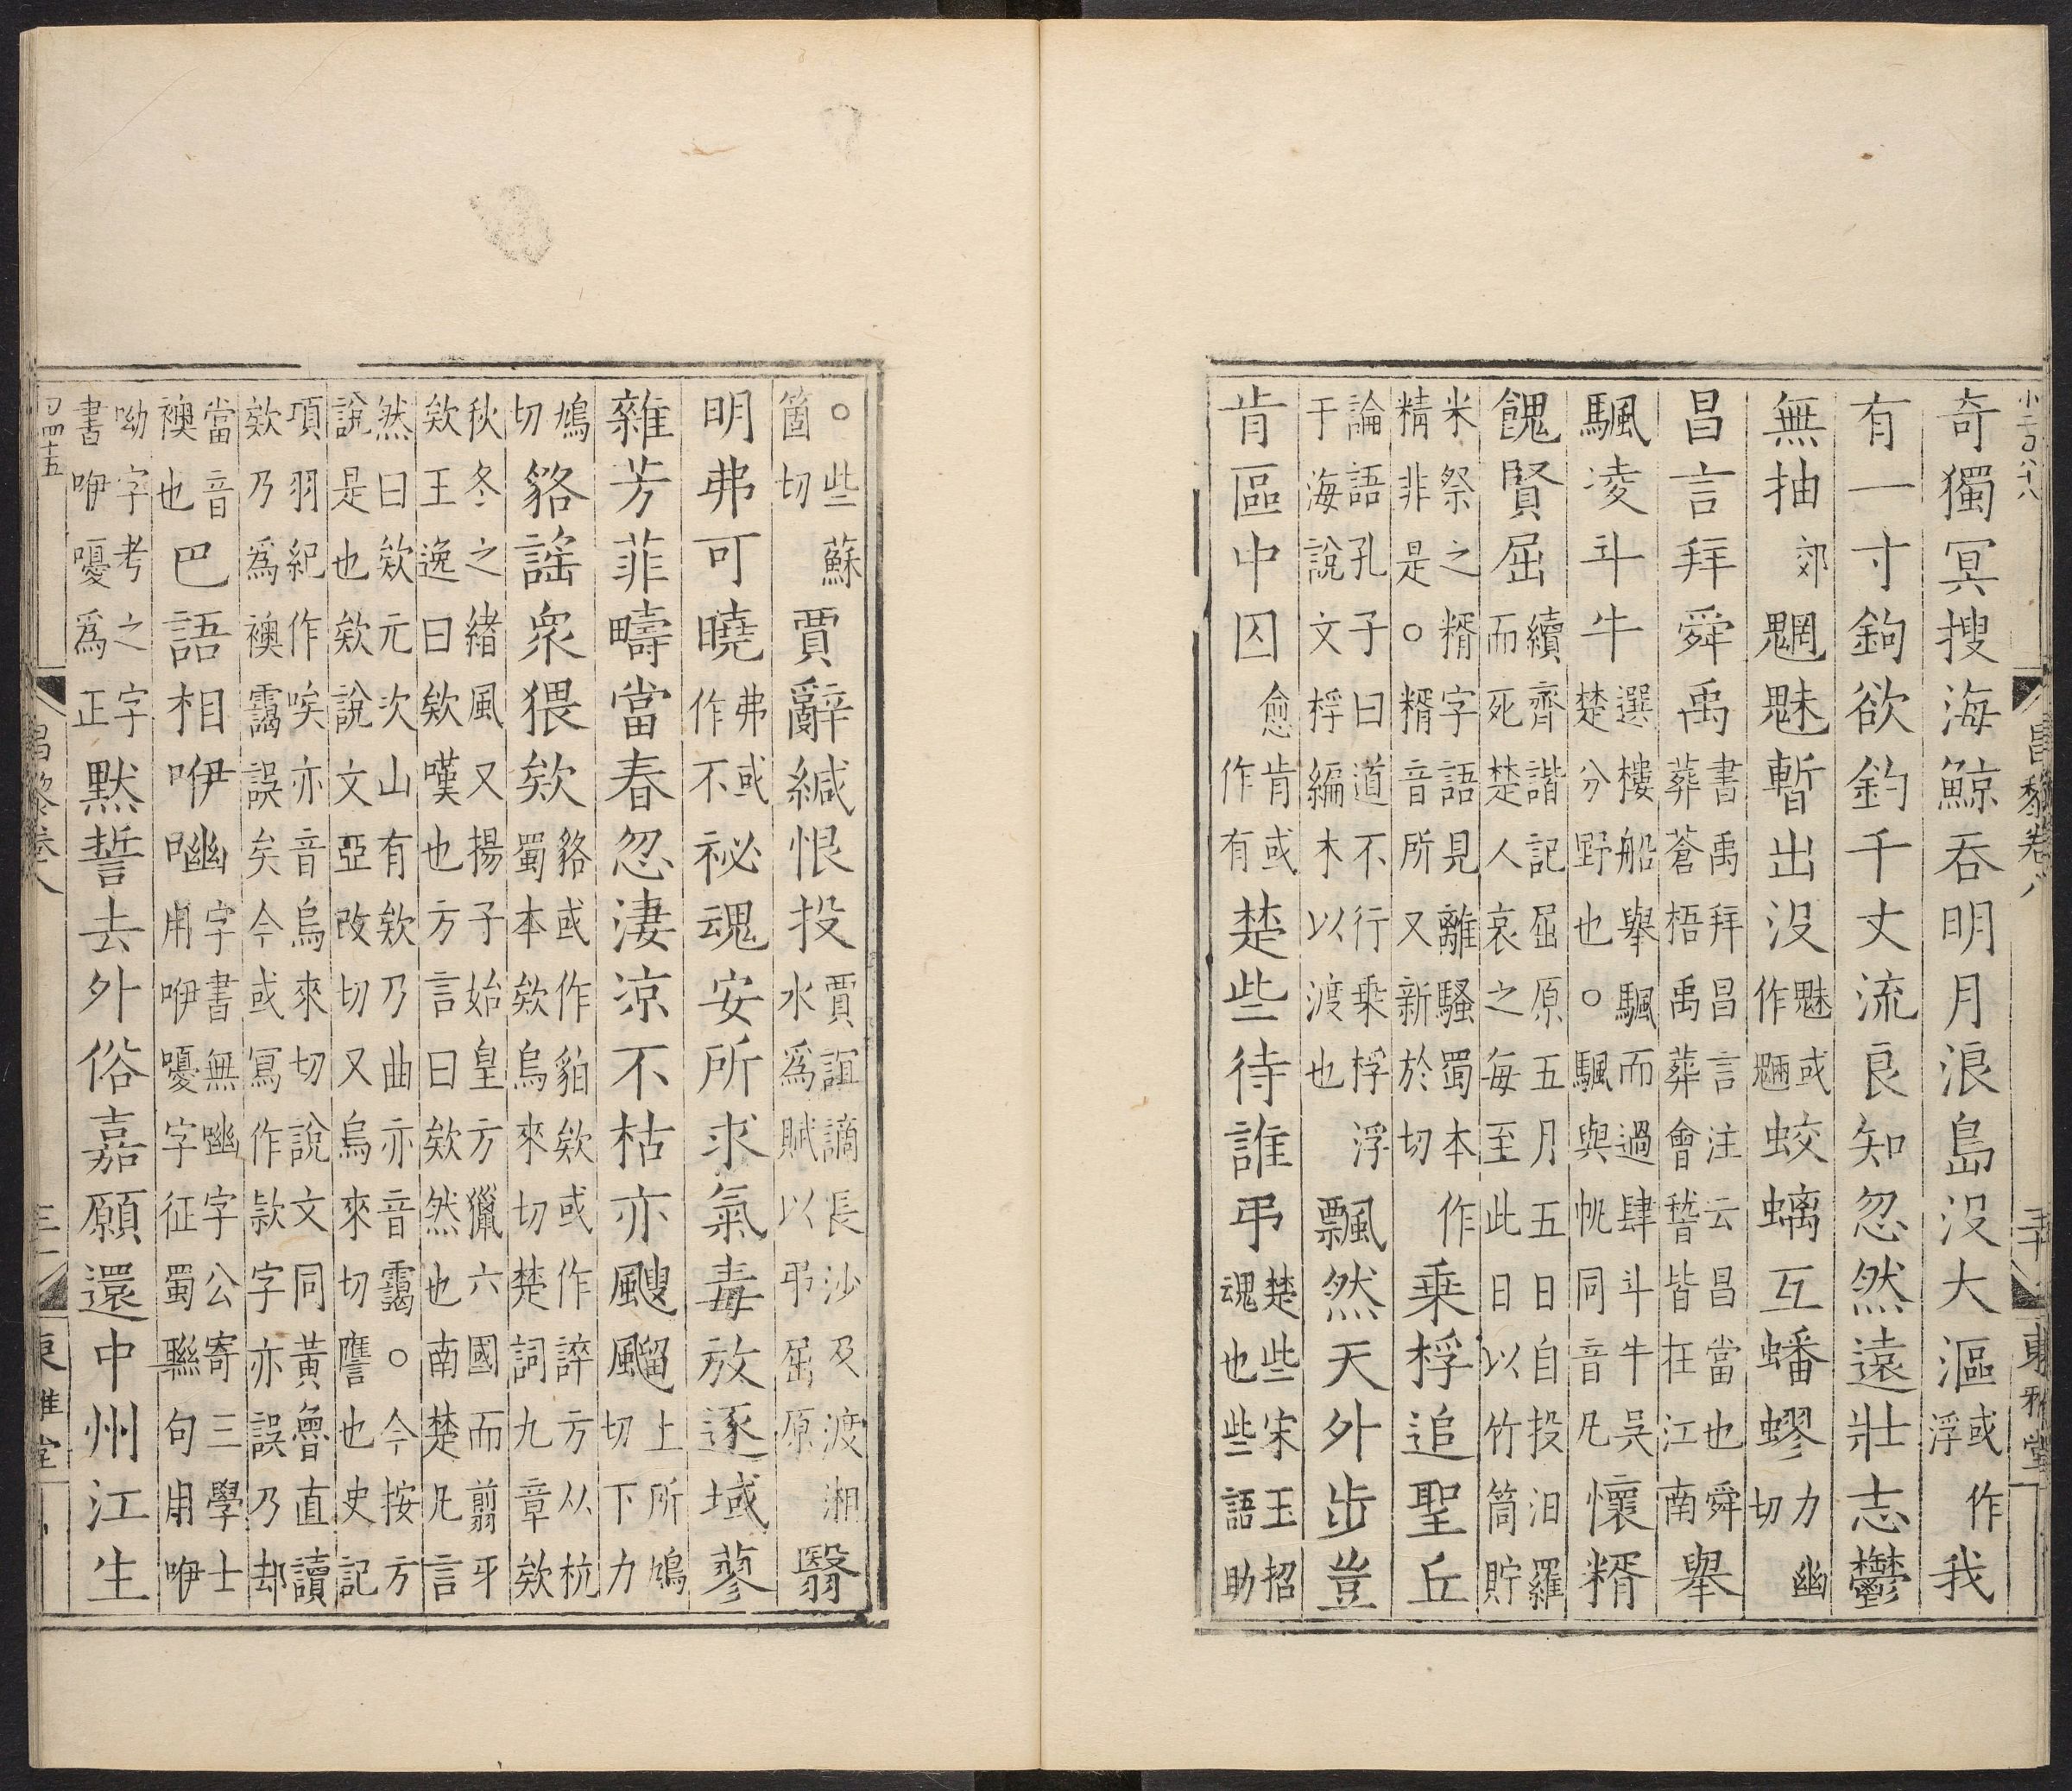 小二百八十八
昌黎卷八 三十 東雅堂
奇獨冥搜海鯨吞明月浪島没大漚或作浮我
有一寸鉤欲釣千丈流良知忽然遠壯志鬱
無抽郊魍魅暫出没魅或作魎蛟螭互蟠蟉力幽切
昌言拜舜禹書禹拜昌言注云昌當也舜葬蒼梧禹葬會稽皆在江南舉
颿凌斗牛選樓船舉颿而過肆斗牛吳楚分野也○颿與帆同音凡懷糈
餽賢屈續齊諧記屈原五月五日自投汨羅而死楚人哀之每至此日以竹筒貯
米祭之糈字語見離騷蜀本作精非是○糈音所又新於切乗桴追聖丘
論語孔子曰道不行乗桴浮于海說文桴編木以渡也飄然天外步豈
肯區中囚愈肯或作有楚些待誰弔楚些宋玉招魂也些語助
○些蘇箇切賈辭緘恨投賈誼謫長沙及渡湘水爲賦以弔屈原翳
明弗可曉弗或作不祕魂安所求氣毒放逐域蓼
雜芳菲疇當春忽淒涼不枯亦颼飀上所鳩切下力
鳩切貉謡衆猥欸貉或作貊欸或作誶方从杭蜀本欸烏來切楚詞九章欸
秋冬之緒風又揚子始皇方獵六國而翦牙欸王逸曰欸嘆也方言曰欸然也南楚凡言
然曰欸元次山有欸乃曲亦音靄○今按方說是也欸說文亞改切又烏來切譍也史記
項羽紀作唉亦音烏來切說文同黃魯直讀欸乃爲襖靄誤矣今或冩作款字亦誤乃却
當音襖也巴語相咿字書無字公寄三學士用咿嚘字征蜀聮句用咿
呦字考之字書咿嚘爲正黙誓去外俗嘉願還中州江生
昌黎卷八 三一 東雅堂
四十五